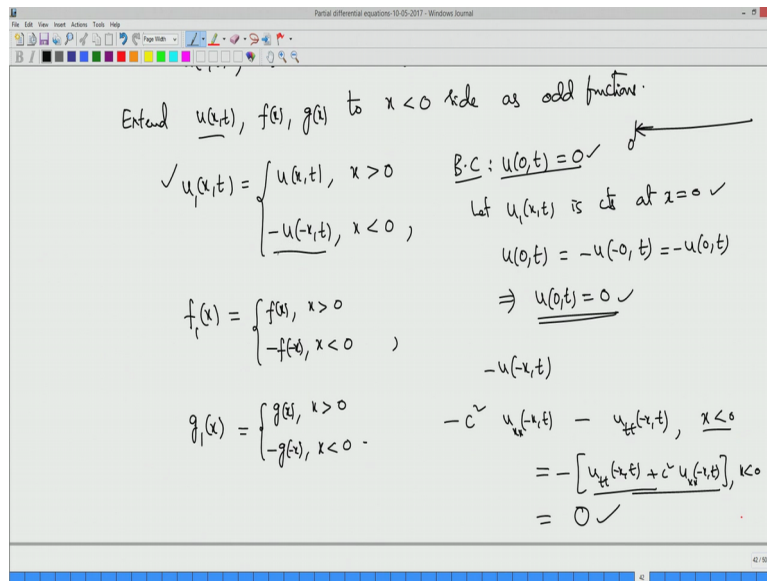 Partial differential equations-10-05-2017 - Windows Journal
File Edit View Insert Actions Tools Help
Page Width
B I
Extend u(x,t), f(x), g(x) to x<0 side as odd functions.
✓ u₁(x,t) = { u(x,t), x>0
-u(-x,t), x<0 ,
B.C : u(0,t) = 0 ✓
Let u₁(x,t) is cts at x=0 ✓
u(0,t) = -u(-0,t) = -u(0,t)
⇒ u(0,t) = 0 ✓
f₁(x) = { f(x), x>0
-f(-x), x<0 ,
-u(-x,t)
g₁(x) = { g(x), x>0
-g(-x), x<0 .
-c² uₓₓ(-x,t) - uₜₜ(-x,t), x<0
= -[uₜₜ(-x,t) + c² uₓₓ(-x,t)], x<0
= 0 ✓
42/50
42